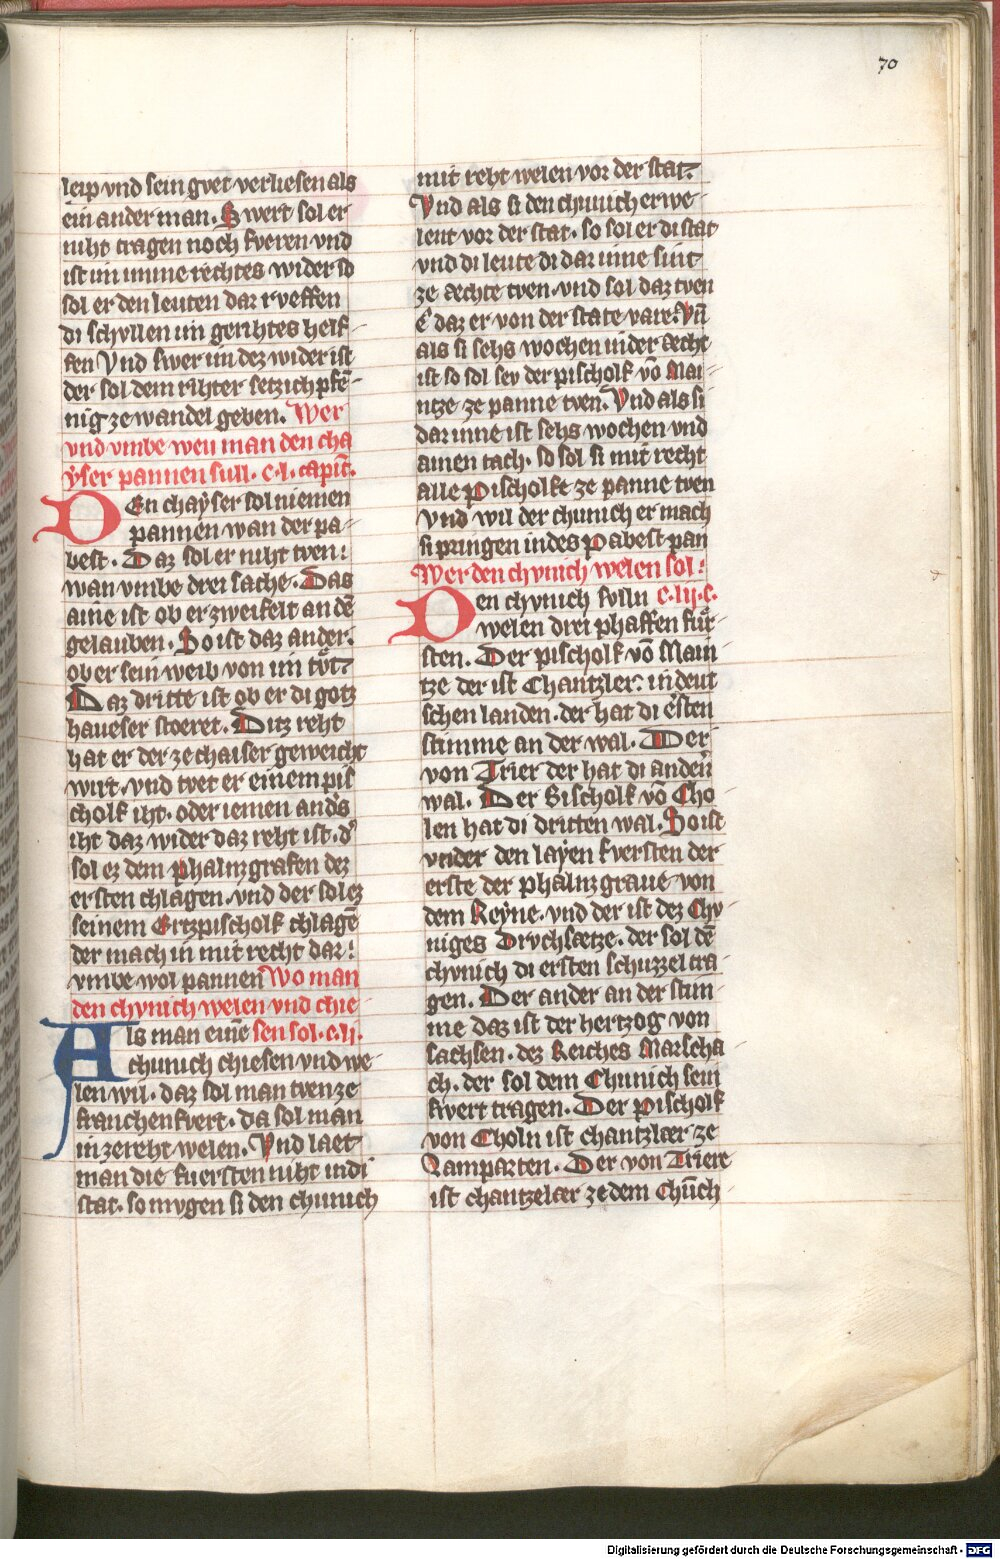 70
leip vnd sein gvet verliesen als
ein ander man. Swert sol er
niht tragen noch fveren vnd
ist im imme rechtes wider so
sol er den leuten dar rveffen
di schvllen im gerihtes helf-
fen Vnd swer im dez wider ist
der sol dem rihter setzich pfē-
nig ze wandel geben. Wer
vnd vmbe weu man den cha
ẏser pannen sull. c.l. capit̄.
DEn chaẏser sol niemen
pannen wan der pa-
best. Daz sol er niht tven:
wan vmbe drei sache. Das
aine ist ob er zweifelt an dē
gelauben. So ist daz ander.
ob er sein weib von im tv̊t.
Daz dritte ist ob er di gotz
haveser stoeret. Ditz reht
hat er der ze chaiser geweicht
wirt. vnd tvet er einem pis
cholf iht. oder iemen and̓s
iht daz wider daz reht ist. d̓
sol ez dem phalnzgrafen dez
ersten chlagen. vnd der sol ez
seinem Ertzpischolf chlagē
der mach in mit recht dar:
vmbe wol pannen Wo man
den chvnich welen vnd chie-
Als man einē sen sol. c.li.
chunich chiesen vnd we-
len wil. daz sol man tven ze
franchenfvert. da sol man
in ze reht welen. Vnd laet
man die fuersten niht in di
stat. so mvgen si den chunich
mit reht welen vor der stat.
Vnd als si den chunich erwe-
lent vor der stat. so sol er di stat
vnd di leute di dar inne sint
ze aechte tven. vnd sol daz tven
e daz er von der state vare. Vn̄
als si sehs wochen in der aecht
ist so sol sev der pischolf vō Mai-
ntze ze panne tven. Vnd als si
dar inne ist sehs wochen vnd
ainen tach. so sol si mit recht
alle pischolfe ze panne tven
Vnd wil der chunich er mach
si pringen in des pabest pan
Wer den chvnich welen sol:
Den chvnich svlln c.lij.c.
welen drei phaffen fur-
sten. Der pischolf vō Main
tze der ist Chantzler. in deut
schen landen. der hat di ersten
stimme an der wal. Der
von Trier der hat di anden̄
wal. Der Bischolf vō Cho
len hat di dritten wal. So ist
vnder den layen fversten der
erste der phalnzgraue von
dem Reẏne. vnd der ist dez Chv-
niges Drvchsætze. der sol dē
chvnich di ersten schuzzel tra-
gen. Der ander an der stim-
me daz ist der hertzog von
sachsen. dez Reiches Marscha
ch. der sol dem Chunich sein
swert tragen. Der pischolf
von Choln ist chantzlær ze
Lamparten. Der von Triere
ist chantzelær ze dem Chūch
Digitalisierung gefördert durch die Deutsche Forschungsgemeinschaft - DFG